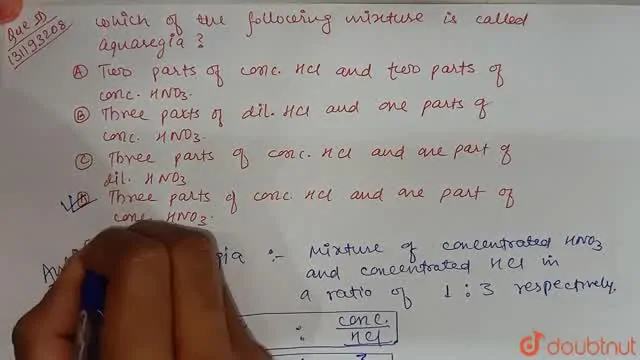 Que ID
131193208
which of the following mixture is called
aquaregia?
A Two parts of conc. HCl and two parts of
conc. HNO3.
B Three parts of dil. HCl and one parts of
conc. HNO3.
C Three parts of conc. HCl and one part of
dil. HNO3
Three parts of conc. HCl and one part of
conc. HNO3.
:- Mixture of concentrated HNO3
and concentrated HCl in
a ratio of 1:3 respectively.
: conc.
HCl
: 3
doubtnut